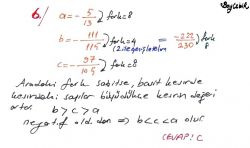 Beyşenk
6) a = - 5/13 ) fark = 8
b = - 111/115 ) fark = 4 = -222/230 ) fark 8
(2 ile genişletelim)
c = - 97/105 ) fark = 8
Aradaki fark sabitse, basit kesirde
kesirdeki sayılar büyüdükçe kesrin değeri
artar.
b > c > a
negatif old. dan → b<c<a olur
CEVAP: C